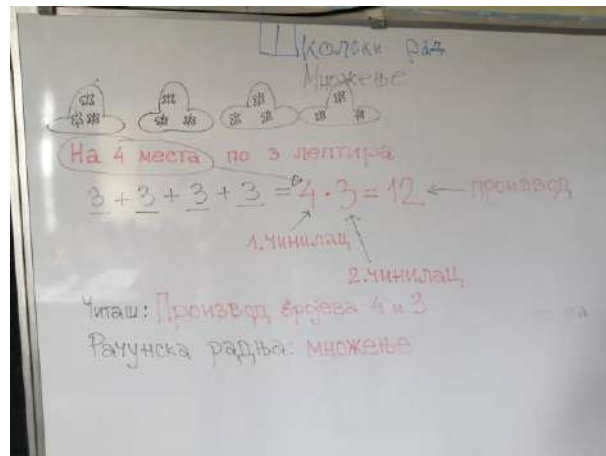 Школски рад
Множење
На 4 места по 3 лептира
3 + 3 + 3 + 3 = 4 · 3 = 12 ← производ
1. чинилац
2. чинилац
Читаш: Производ бројева 4 и 3
Рачунска радња: множење